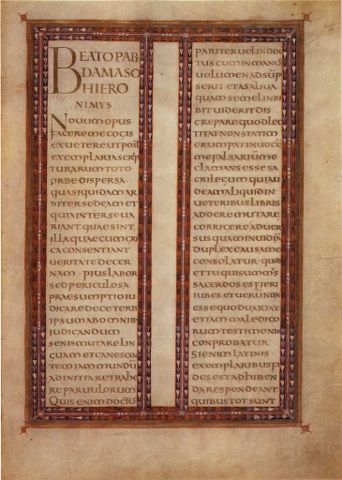 BEATO PAPE
DAMASO
HIERO
NIMUS
NOVUM OPUS
FACERE ME COGIS
EX VETERE UT POST
EXEMPLARIA SCRIP
TURARUM TOTO
ORBE DISPERSA
QUASI QUIDAM AR
BITER SEDEAM ET
QUIA INTER SE UA
RIANT QUAE SINT
ILLA QUAE CUM GRE
CA CONSENTIANT
UERITATE DECER
NAM · PIUS LABOR
SED PERICULOSA
PRAESUMPTIO IU
DICARE DE CETERIS
IPSUM AB OMNIB
IUDICANDUM
SENIS MUTARE LIN
GUAM ET CANESCEN
TEM IAM MUNDU
AD INITIA RETRAHE
RE PARUULORUM
QUIS ENIM DOCTUS
PARITER UEL INDOC
TUS CUM IN MANUS
UOLUMEN ADSUMP
SERIT ET A SALIUA
QUAM SEMEL INBI
BIT UIDERIT DIS
CREPARE QUOD LEC
TITAT NON STATIM
ERUMPAT IN UOCE
ME FALSARIUM ME
CLAMANS ESSE SA
CRILEGUM QUI AU
DEAM ALIQUID IN
UETERIBUS LIBRIS
ADDERE MUTARE
CORRIGERE ADUER
SUS QUAM INUIDIA
DUPLEX CAUSA ME
CONSOLATUR · QUOD
ET TU QUI SUMMUS
SACERDOS ES FIERI
IUBES ET UERUM NON
ESSE QUOD UARIAT
ETIAM MALEDICO
RUM TESTIMONIO
CONPROBATUR
SI ENIM LATINIS
EXEMPLARIBUS FI
DES EST ADHIBEN
DA RESPONDEANT
QUIBUS TOT SUNT